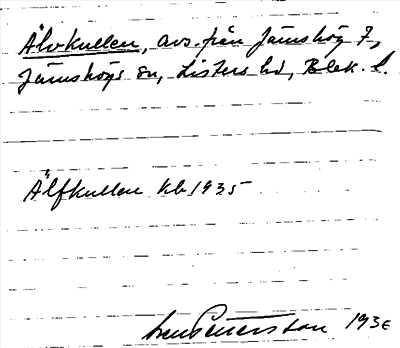 Älvkullen, avs. från Jämshög 7,
Jämshögs sn, Listers hd, Blek. l.
Älfkullen kb 1935
Sven Petersson 1936